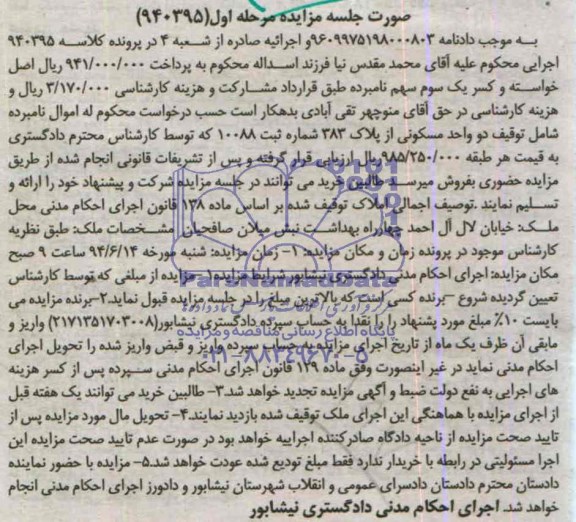 صورت جلسه مزایده مرحله اول(۹۴۰۳۹۵)
به موجب دادنامه ۹۶۰۹۹۷۵۱۹۸۰۰۰۸۰۳و اجرائیه صادره از شعبه ۴ در پرونده کلاسه ۹۴۰۳۹۵
اجرایی محکوم علیه آقای محمد مقدس نیا فرزند اسداله محکوم به پرداخت ۹۴۱/۰۰۰/۰۰۰ ریال اصل
خواسته و کسر یک سوم سهم نامبرده طبق قرارداد مشارکت و هزینه کارشناسی ۳/۱۷۰/۰۰۰ ریال و
هزینه کارشناسی در حق آقای منوچهر تقی آبادی بدهکار است حسب درخواست محکوم له اموال نامبرده
شامل توقیف دو واحد مسکونی از پلاک ۳۸۳ شماره ثبت ۱۰۰۸۸ که توسط کارشناس محترم دادگستری
به قیمت هر طبقه ۹۸۵/۲۵۰/۰۰۰ریال ارزیابی قرار گرفته و پس از تشریفات قانونی انجام شده از طریق
مزایده حضوری بفروش میرسد طالبین خرید می توانند در جلسه مزایده شرکت و پیشنهاد خود را ارائه و
تسلیم نمایند .توصیف اجمالی املاک توقیف شده بر اساس ماده ۱۳۸ قانون اجرای احکام مدنی محل
ملک: خیابان لال آل احمد چهارراه بهداشت نبش میلان صافحیان مشخصات ملک: طبق نظریه
کارشناس موجود در پرونده زمان و مکان مزایده: ۱- زمان مزایده: شنبه مورخه ۹۴/۶/۱۴ ساعت ۹ صبح
مکان مزایده: اجرای احکام مدنی دادگستری نیشابور شرایط مزایده ۱- مزایده از مبلغی که توسط کارشناس
تعیین گردیده شروع –برنده کسی است که بالاترین مبلغ را در جلسه مزایده قبول نماید.۲-برنده مزایده می
بایست ۱۰٪ مبلغ مورد پشنهاد را را نقدا به حساب سپرده دادگستری نیشابور(۲۱۷۱۳۵۱۷۰۳۰۰۸) واریز و
مابقی آن ظرف یک ماه از تاریخ اجرای مزایده به حساب سپرده واریز و قبض واریز شده را تحویل اجرای
احکام مدنی نماید در غیر اینصورت وفق ماده ۱۲۹ قانون اجرای احکام مدنی سپرده پس از کسر هزینه
های اجرایی به نفع دولت ضبط و آگهی مزایده تجدید خواهد شد.۳- طالبین خرید می توانند یک هفته قبل
از اجرای مزایده با هماهنگی این اجرای ملک توقیف شده بازدید نمایند.۴- تحویل مال مورد مزایده پس از
تایید صحت مزایده از ناحیه دادگاه صادرکننده اجراییه خواهد بود در صورت عدم تایید صحت مزایده این
اجرا مسئولیتی در رابطه با خریدار ندارد فقط مبلغ تودیع شده عودت خواهد شد.۵- مزایده با حضور نماینده
دادستان محترم دادستان دادسرای عمومی و انقلاب شهرستان نیشابور و دادورز اجرای احکام مدنی انجام
خواهد شد. اجرای احکام مدنی دادگستری نیشابور
ParsNamadData
پایگاه اطلاع رسانی مناقصه و مزایده
۰۲۱-۸۸۳۴۹۶۷۰-۵